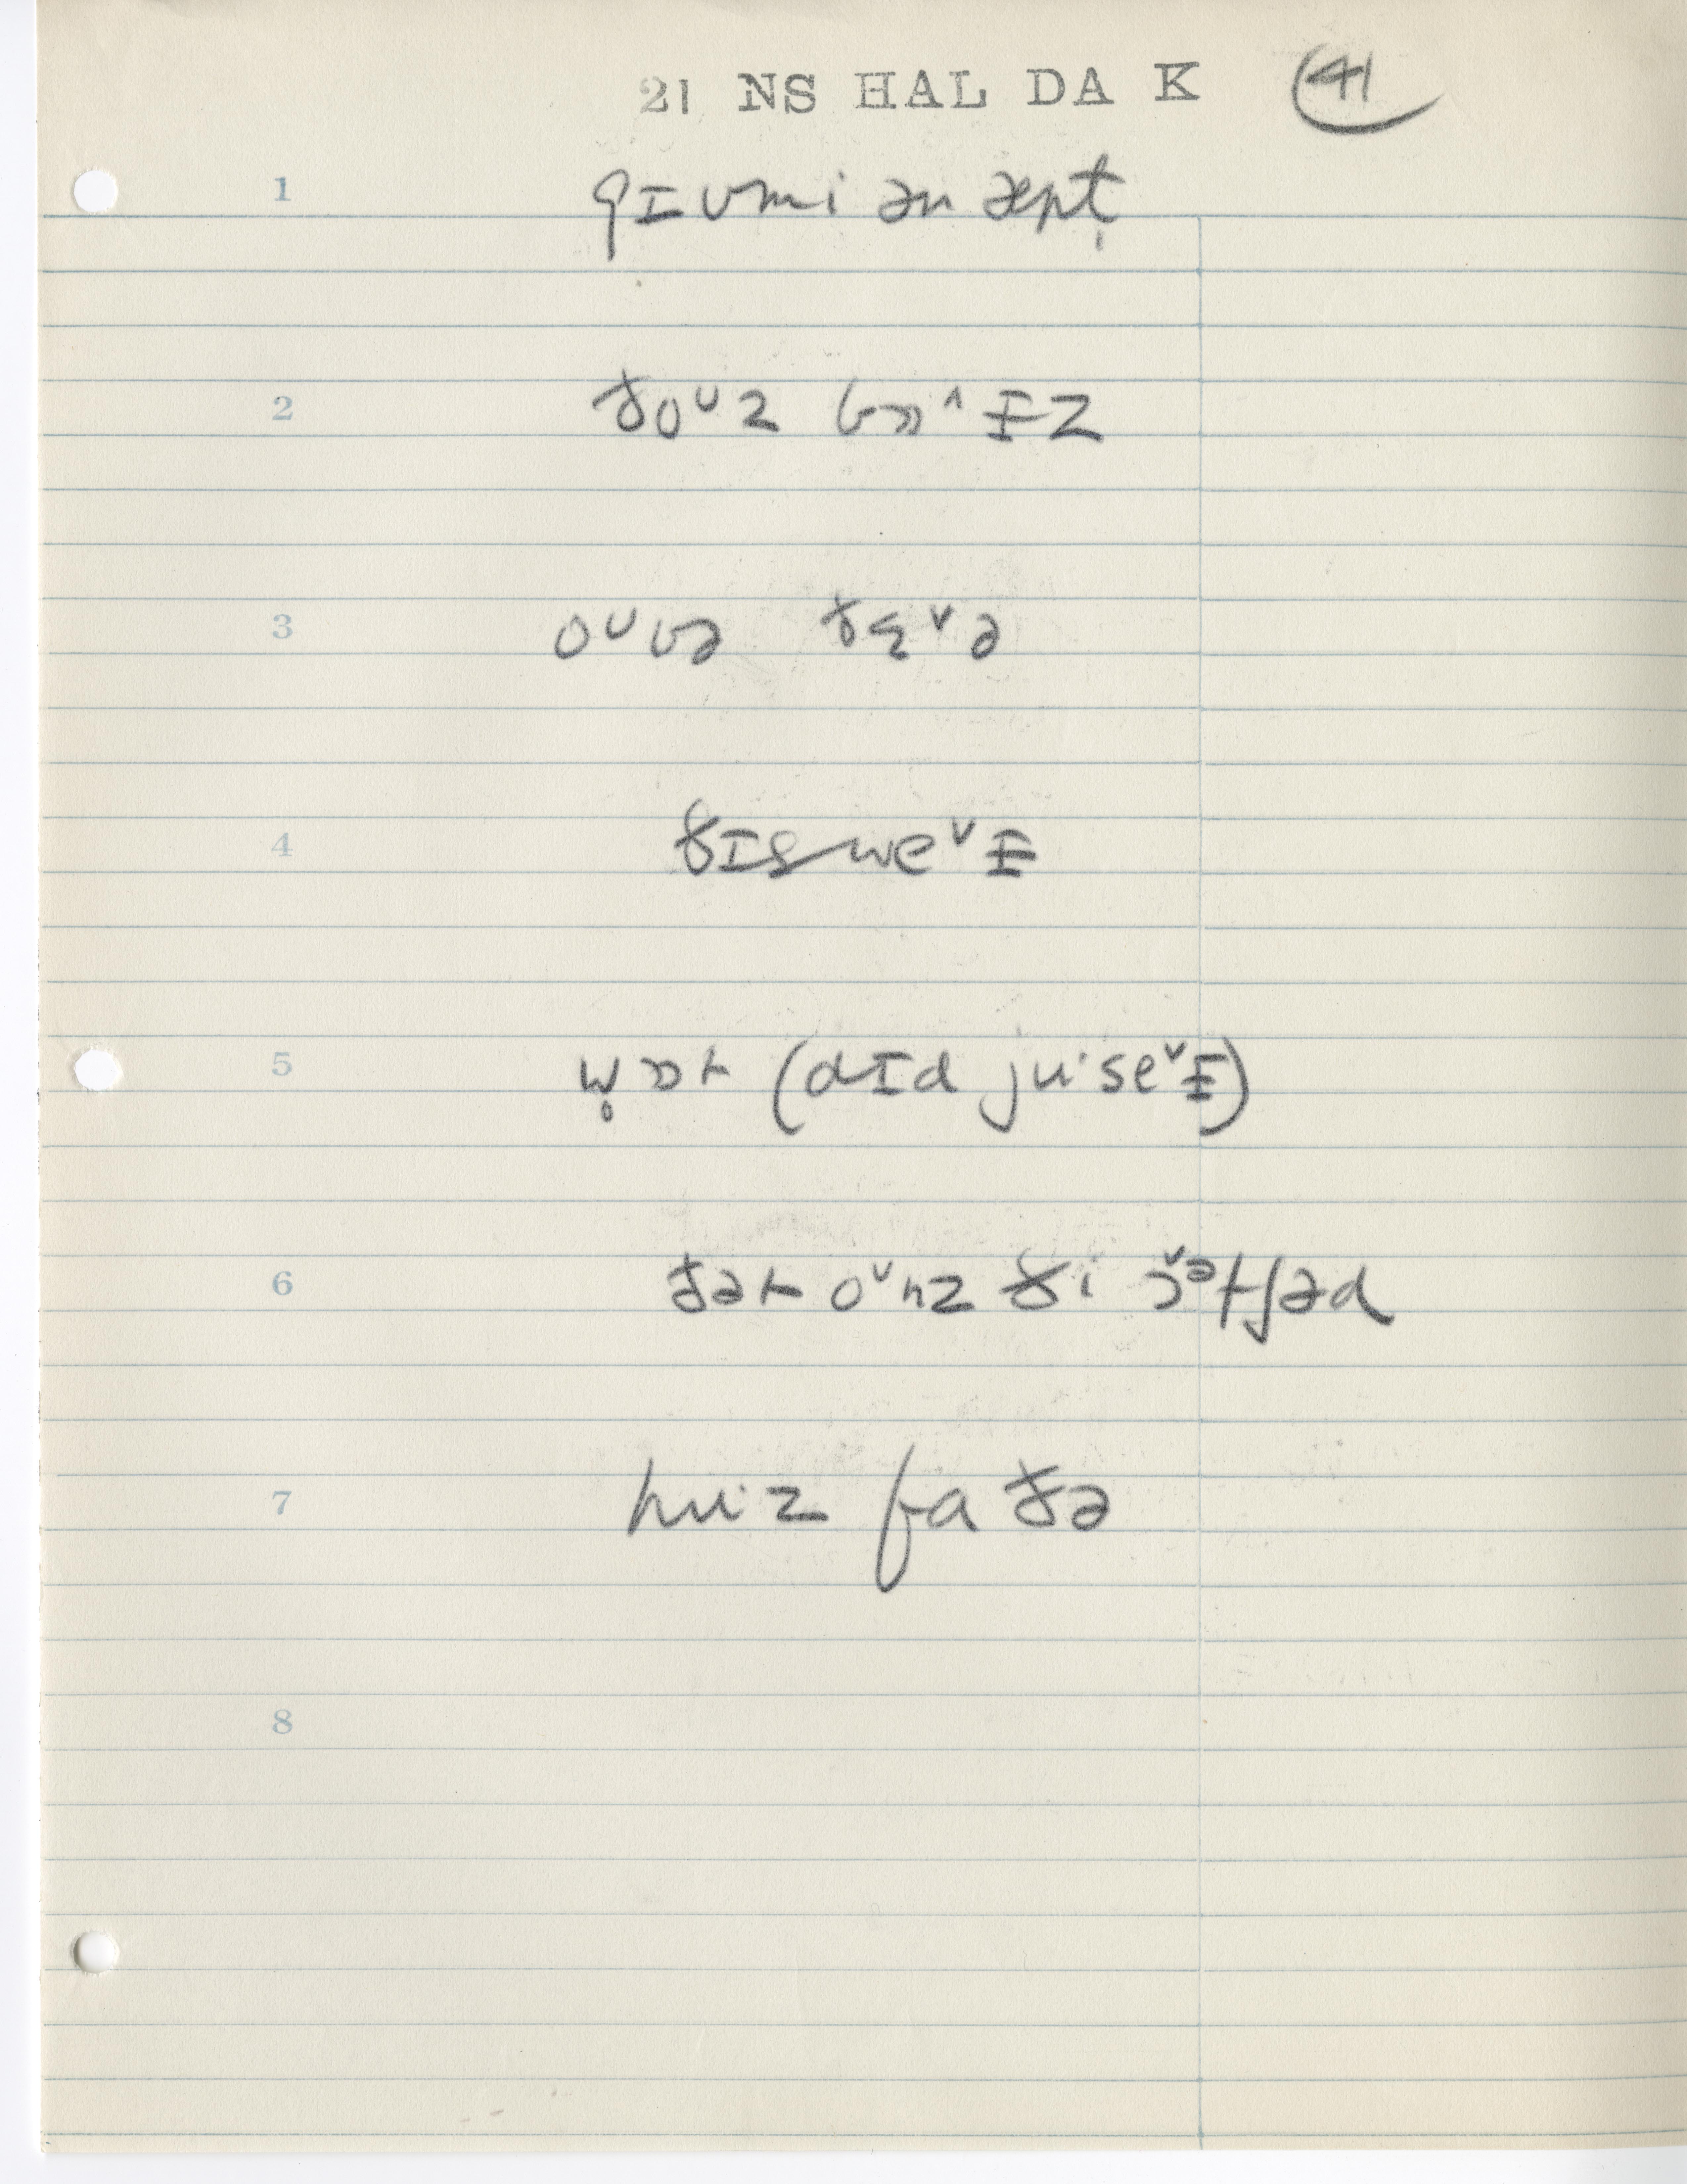 21 NS HAL DA K 41
1 gɪv mi ən æpt̩
2 ðoᵛz bɒˆɪz
3 oᵛvə ðɛᵛə
4 ðɪs weᵛɪ
5 w̥ɒt (dɪd ju· seᵛɪ)
6 ðət oᵛnz ði ɔᵛᵊtʃəd
7 hu·z faðə
8